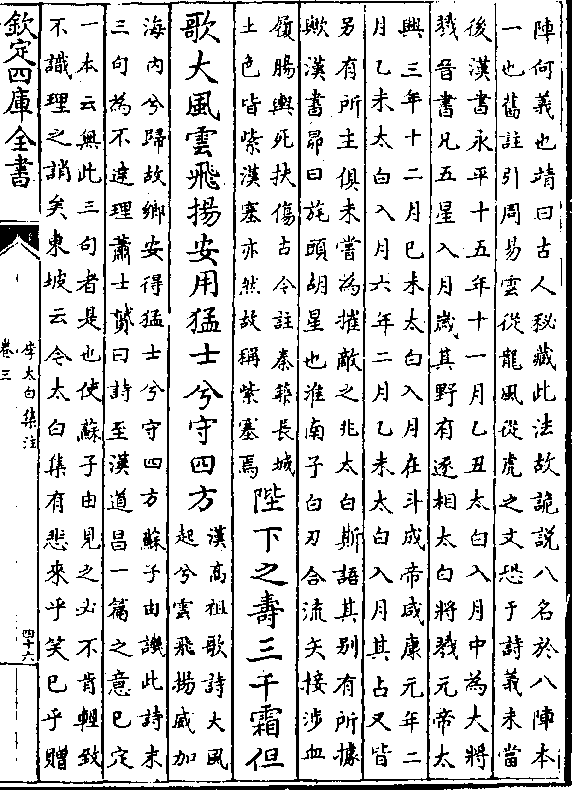 陣何義也靖曰古人秘藏此法故詭說八名於八陣本
一也舊註引周易雲從龍風從虎之文恐于詩義未當
後漢書永平十五年十一月乙丑太白入月中為大將
戮晉書凡五星入月嵗其野有逐相太白將戮元帝太
興三年十二月巳未太白入月在斗成帝咸康元年二
月乙未太白入月六年二月乙未太白入月其占又皆
另有所主俱未嘗為摧敵之兆太白斯語其别有所據
歟漢書昴曰旄頭胡星也淮南子白刃合流矢接涉血
履腸輿死扶傷古今註秦築長城
土色皆紫漢塞亦然故稱紫塞焉
陛下之壽三千霜但
歌大風雲飛揚安用猛士兮守四方
漢高祖歌詩大風
起兮雲飛揚威加
海内兮歸故鄉安得猛士兮守四方蘇子由譏此詩末
三句為不達理蕭士贇曰詩至漢道昌一篇之意已定
一本云無此三句者是也使蘇子由見之必不肯輕致
不識理之誚矣東坡云今太白集有悲來乎笑已乎贈
欽定四庫全書
李太白集注
卷三
四十六